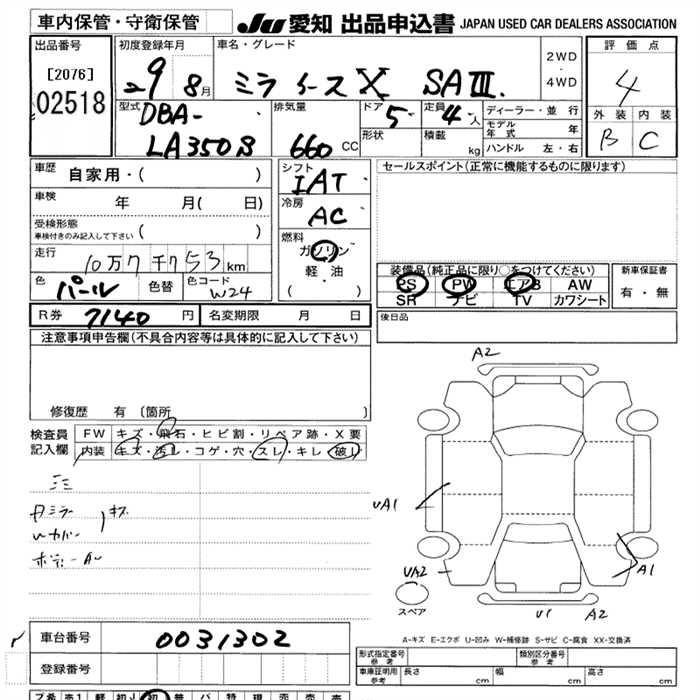 車内保管・守衛保管
JU 愛知 出品申込書 JAPAN USED CAR DEALERS ASSOCIATION
出品番号
[2076]
02518
初度登録年月
29 8月
車名・グレード
ミラ イース X SAⅢ.
2WD
・
4WD
評価点
4
外装 内装
B C
型式
DBA-
LA350S
排気量
660 CC
ドア
5
形状
定員
4人
積載
kg
ディーラー・並行
モデル年式 年
ハンドル 左・右
車歴
自家用・( )
車検
年 月( 日)
受検形態
車検付きのみ記入して下さい ( )
走行
10万7千753km
色
パール
色替
色コード
W24
シフト
IAT
冷房
AC
燃料
ガソリン
軽・油
( ・ )
セールスポイント(正常に機能するものに限ります)
装備品(純正品に限り○をつけてください)
PS PW エアB AW
SR ナビ TV カワシート
新車保証書
有・無
後日品
R券 7140 円
名変期限 月 日
注意事項申告欄(不具合内容等は具体的に記入して下さい)
修復歴 有 〔箇所 〕
検査員
記入欄
FW キズ・飛石・ヒビ割・リペア跡・X要
内装 キズ・汚レ・コゲ・穴・スレ・キレ・破レ
A2
UA1
UA2
A1
U1
A2
スペア
A-キズ E-エクボ U-凹み W-補修跡 S-サビ C-腐食 XX-交換済
車台番号
0031302
登録番号
形式指定番号
参考
類別区分番号
参考
車庫証明用
参考
長さ cm
幅 cm
高さ cm